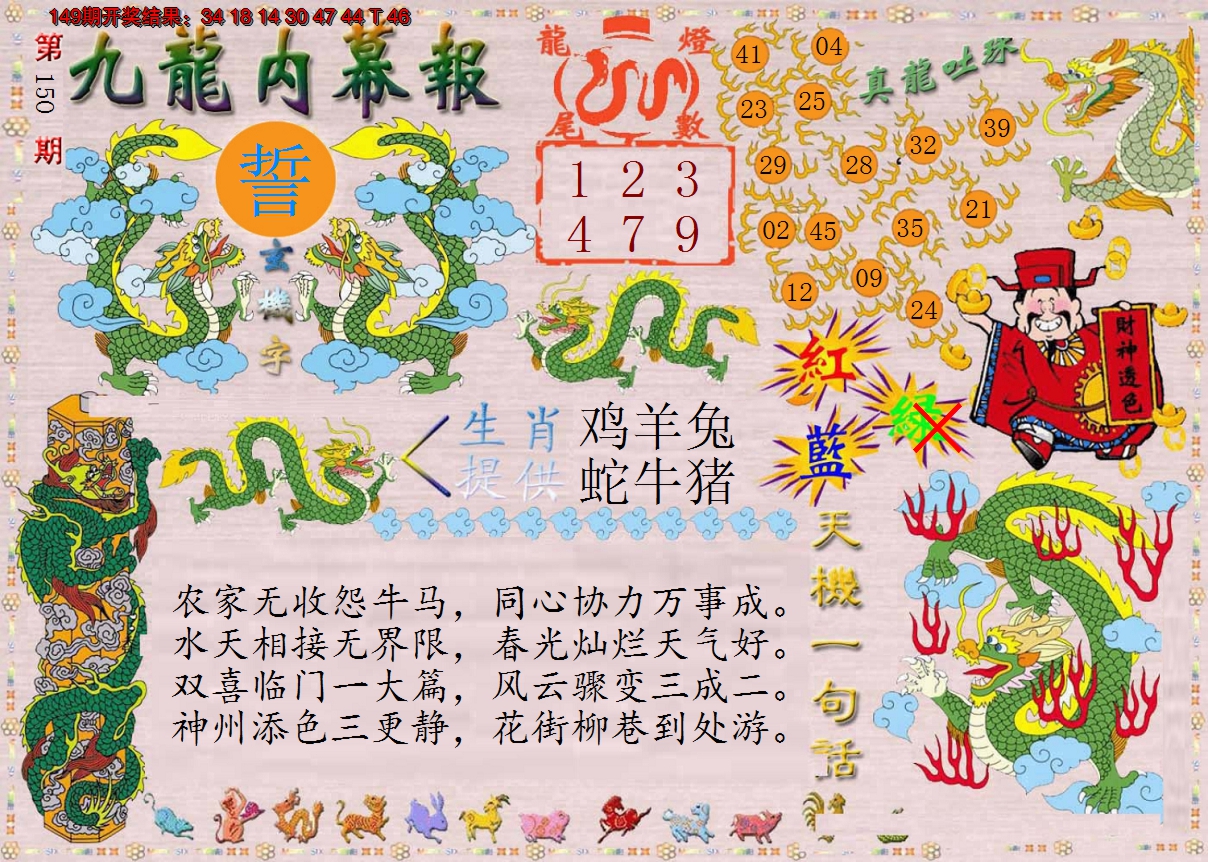 149期开奖结果：34 18 14 30 47 44 T 46
第150期
九龍内幕報
誓
玄機字
龍燈
尾數
1 2 3
4 7 9
真龍吐珠
41 04
23 25
39
32
29 28
21
02 45 35
09
12
24
財神透色
紅
綠
藍
生肖 鸡羊兔
提供 蛇牛猪
天機一句話
农家无收怨牛马，同心协力万事成。
水天相接无界限，春光灿烂天气好。
双喜临门一大篇，风云骤变三成二。
神州添色三更静，花街柳巷到处游。